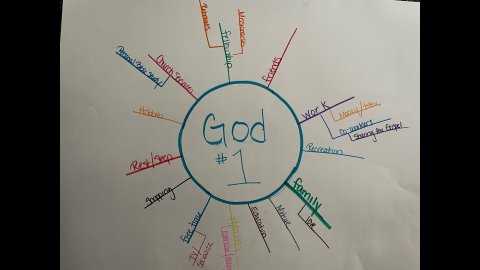 God
#1
Friends
Work
Money/tithe
Co-workers
Sharing the Gospel
Recreation
family
love
Nature
Education
Health
Exercise/
free time
TV
Service
Shopping
Rest/Sleep
Hobbies
Church Services
Personal Bible Study
fellowship
Retreats